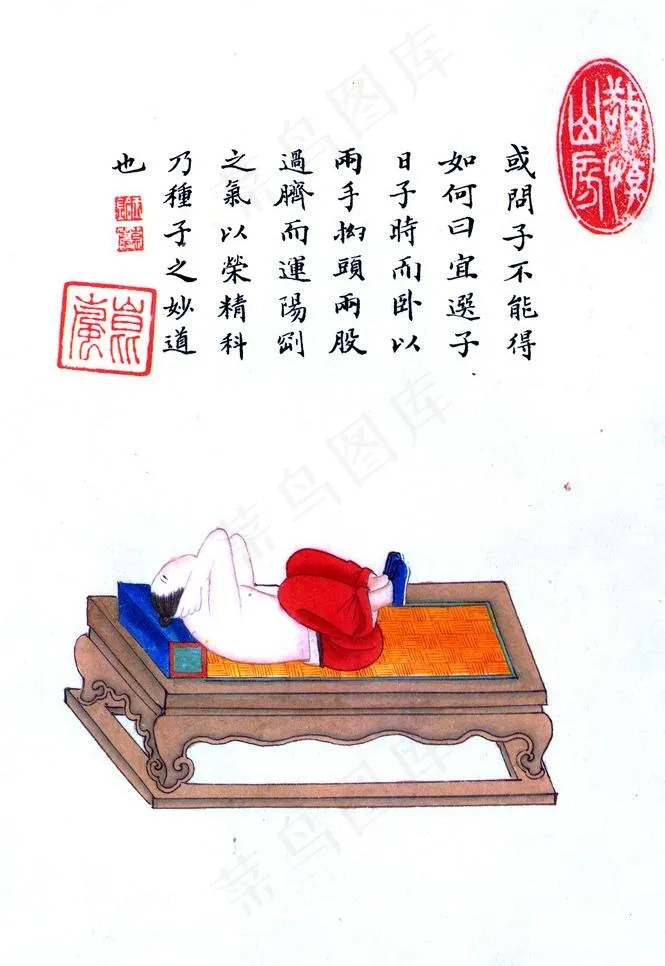 或問子不能得
如何曰宜選子
日子時而卧以
兩手抝頭兩股
過臍而運陽剛
之氣以榮精科
乃種子之妙道
也
菜鸟图库
菜鸟图库
菜鸟图库